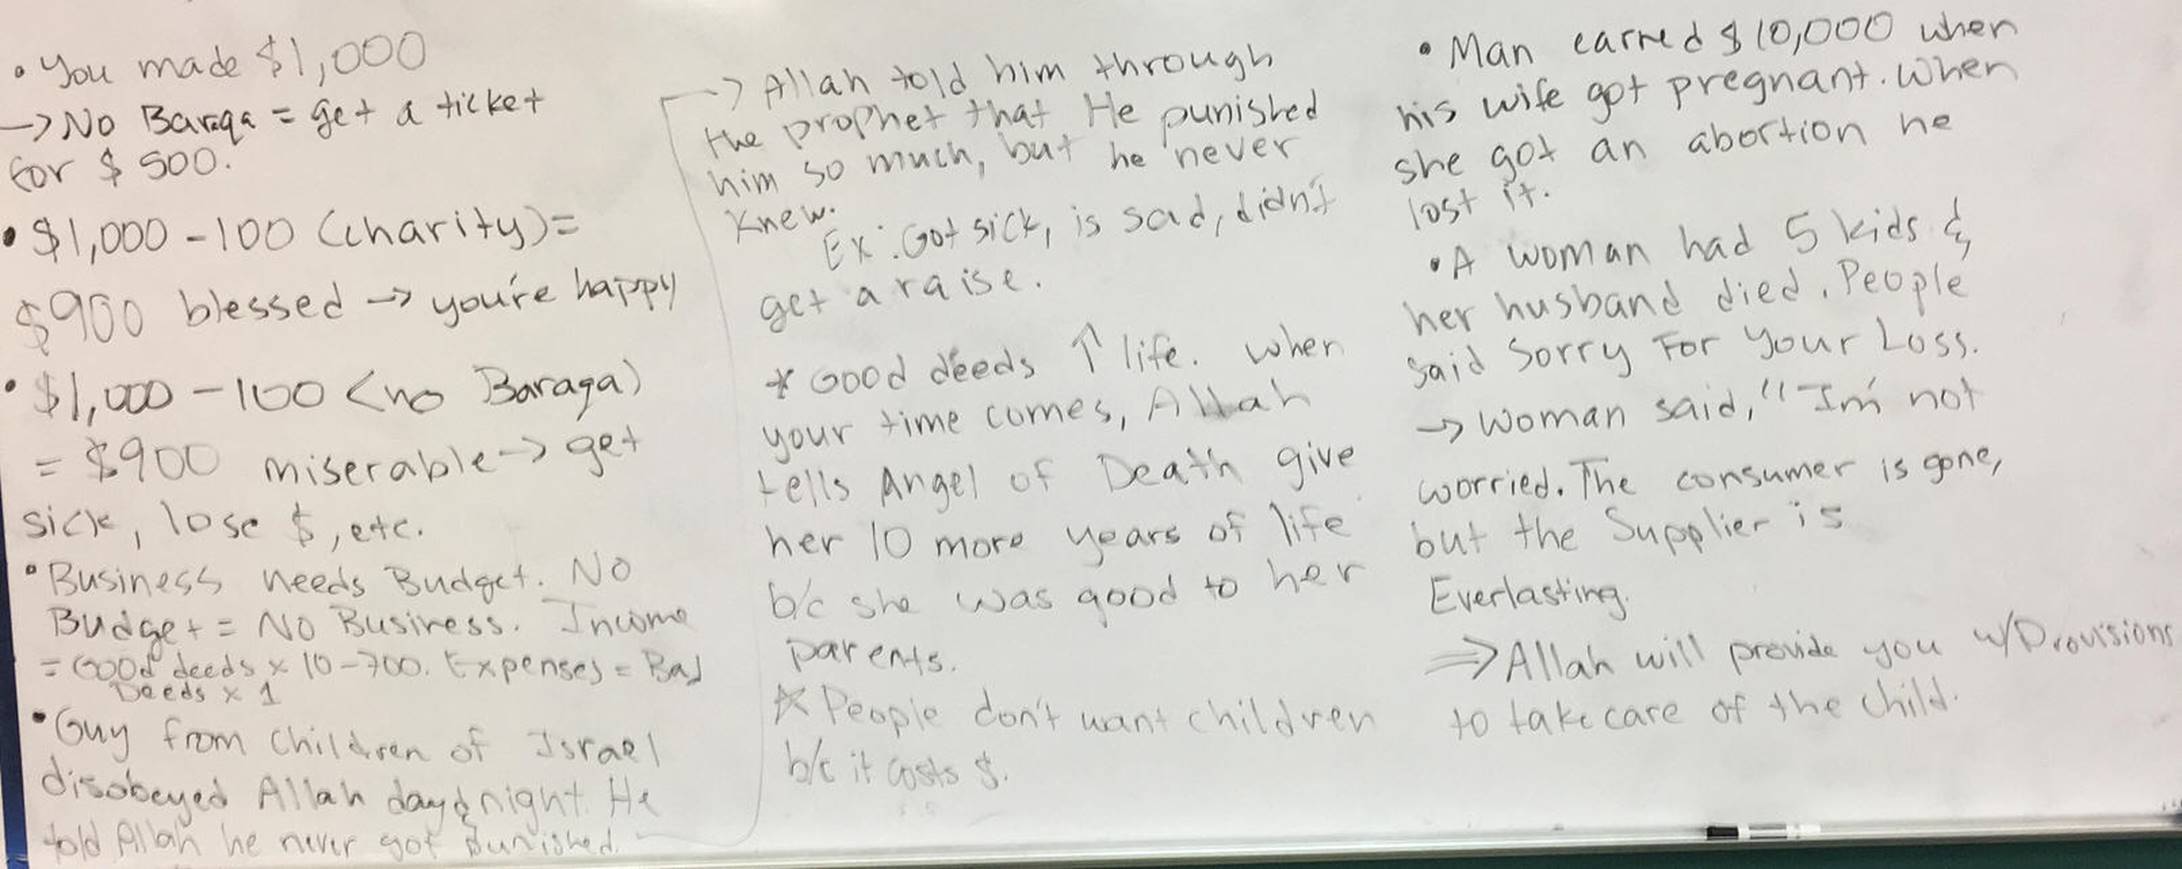 • You made $1,000
→ No Baraqa = get a ticket
for $500.
• $1,000 - 100 (charity) =
$900 blessed → you're happy
• $1,000 - 100 (no Baraqa)
= $900 miserable → get
sick, lose $, etc.
• Business needs Budget. No
Budget = No Business. Income
= Good deeds x 10-700. Expenses = Bad
Deeds x 1
• Guy from Children of Israel
disobeyed Allah day & night. He
told Allah he never got punished.
→ Allah told him through
the prophet that He punished
him so much, but he never
knew.
Ex: Got sick, is sad, didn't
get a raise.
* Good deeds ↑ life. When
your time comes, Allah
tells Angel of Death give
her 10 more years of life
b/c she was good to her
parents.
* People don't want children
b/c it costs $.
• Man earned $10,000 when
his wife got pregnant. When
she got an abortion he
lost it.
• A woman had 5 kids &
her husband died. People
said Sorry For Your Loss.
→ Woman said, "I'm not
worried. The consumer is gone,
but the Supplier is
Everlasting.
⇒ Allah will provide you w/Provisions
to take care of the child.